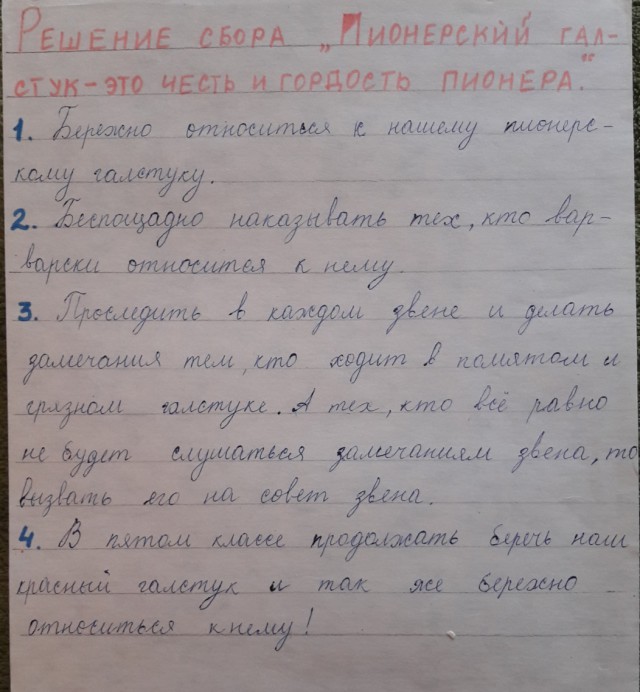 РЕШЕНИЕ СБОРА „ПИОНЕРСКИЙ ГАЛ-
СТУК-ЭТО ЧЕСТЬ И ГОРДОСТЬ ПИОНЕРА."
1. Бережно относиться к нашему пионерс-
кому галстуку.
2. Беспощадно наказывать тех, кто вар-
варски относится к нему.
3. Проследить в каждом звене и делать
замечания тем, кто ходит в помятом и
грязном галстуке. А тех, кто всё равно
не будет слушаться замечаниям звена, то
вызвать его на совет звена.
4. В пятом классе продолжать беречь наш
красный галстук и так же бережно
относиться к нему!